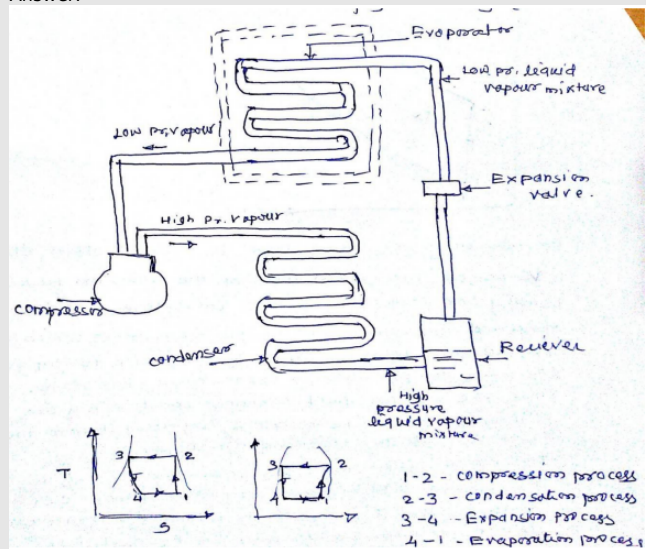 Answer:
Evaporator
Low pr. liquid
vapour mixture
Low Pr, vapour
Expansion
valve.
High Pr. vapour
compressor
condenser
Reciever
High
pressure
liquid vapour
mixture
3 2
T
4 1
S
3 2
4 1
1-2 - compression process
2-3 - condensation process
3-4 - Expansion Process
4-1 - Evaporation process